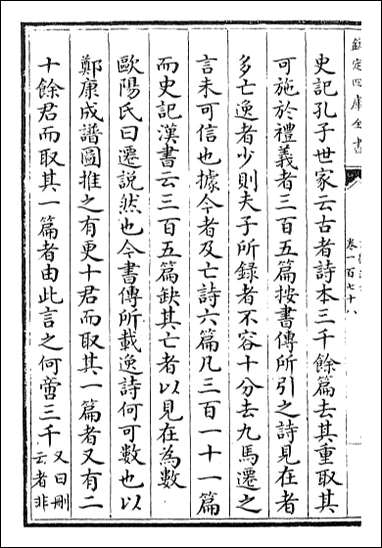 欽定四庫全書
卷一百七十八
史記孔子世家云古者詩本三千餘篇去其重取其
可施於禮義者三百五篇按書傳所引之詩見在者
多亡逸者少則夫子所録者不容十分去九馬遷之
言未可信也據今者及亡詩六篇凡三百一十一篇
而史記漢書云三百五篇缺其亡者以見在為數
歐陽氏曰遷説然也今書傳所載逸詩何可數也以
鄭康成譜圖推之有更十君而取其一篇者又有二
十餘君而取其一篇者由此言之何啻三千
又曰刪
云者非